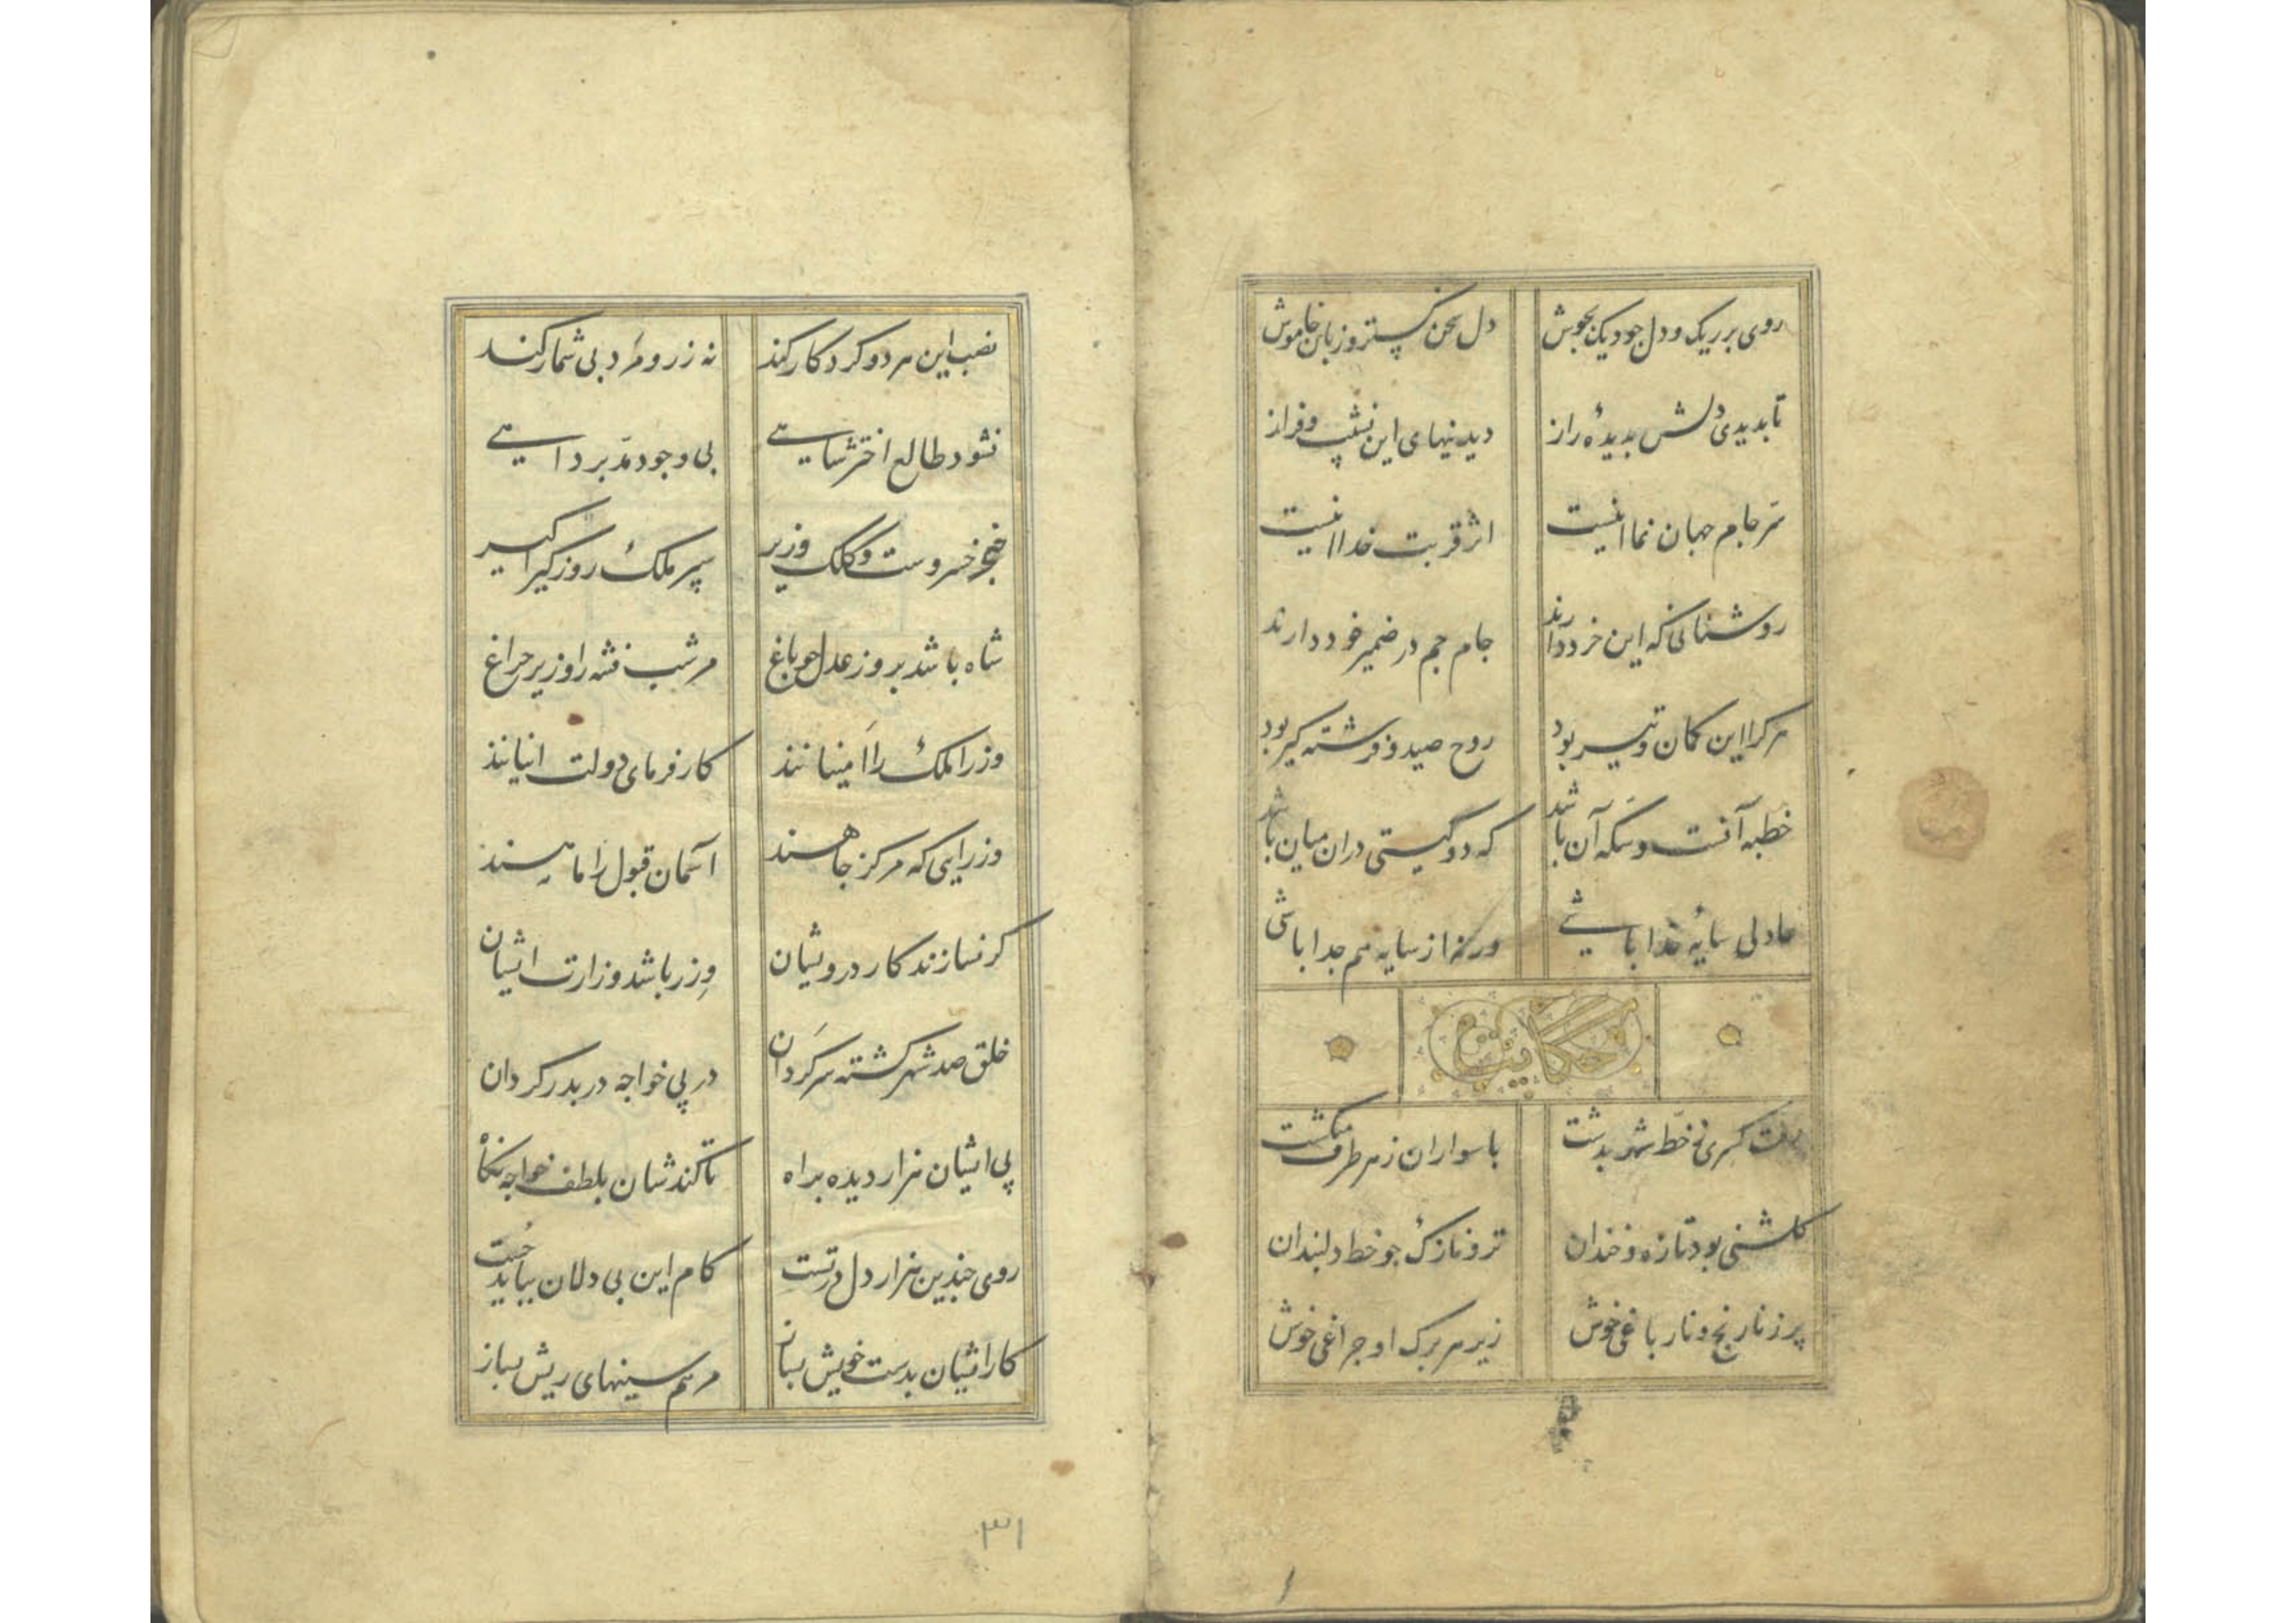 روی بر ریک و دل جو دیک بجوش دل سخن کستر و زبان خاموش
تا بدیدی دلش بدیدهٔ راز دیدنیهای این نشیب و فراز
سر جام جهان نما اینست اثر قربت خدا اینست
روشنانی که این خرد دارند جام جم در ضمیر خود دارند
هر کرا این کمان و تیر بود روح صید و فرشته کیر بود
خطبه آنست و سکه آن باشد که دو کیتی دران میان باشد
عادلی سایهٔ خدا باشی ورنه از سایه هم جدا باشی
حکایت
رفت کسری ز خط شهر بدشت با سواران ز هر طرف میکشت
کلشنی بود تازه و خندان تر و نازک جو خط دلبندان
پر ز نارنج و نار باغی خوش زیر هر برک او جراغی خوش
نصب این هر دو کردکار کند نه زر و مرد بی شمار کند
نشود طالع اختر شاهی بی وجود مدبر داهی
خنجر خسروست و کلک وزیر سپر ملک روز کیراکیر
شاه باشد بروز عدل جو باغ مر شب فتنه را وزیر جراغ
وزرا ملک را امینانند کارفرمای دولت اینانند
وزرایی که مرکز جاهند آسمان قبول را ماهند
کر نسازند کار درویشان وزر باشد وزارت ایشان
خلق صد شهر کشته سرکردان در پی خواجه در بدر کردان
پی ایشان هزار دیده براه تا کندشان بلطف خواجه نکاه
روی جندین هزار دل در تست کام این بی دلان بباید جست
کار ایشان بدست خویش بساز مرهم سینهای ریش بساز
۳۱